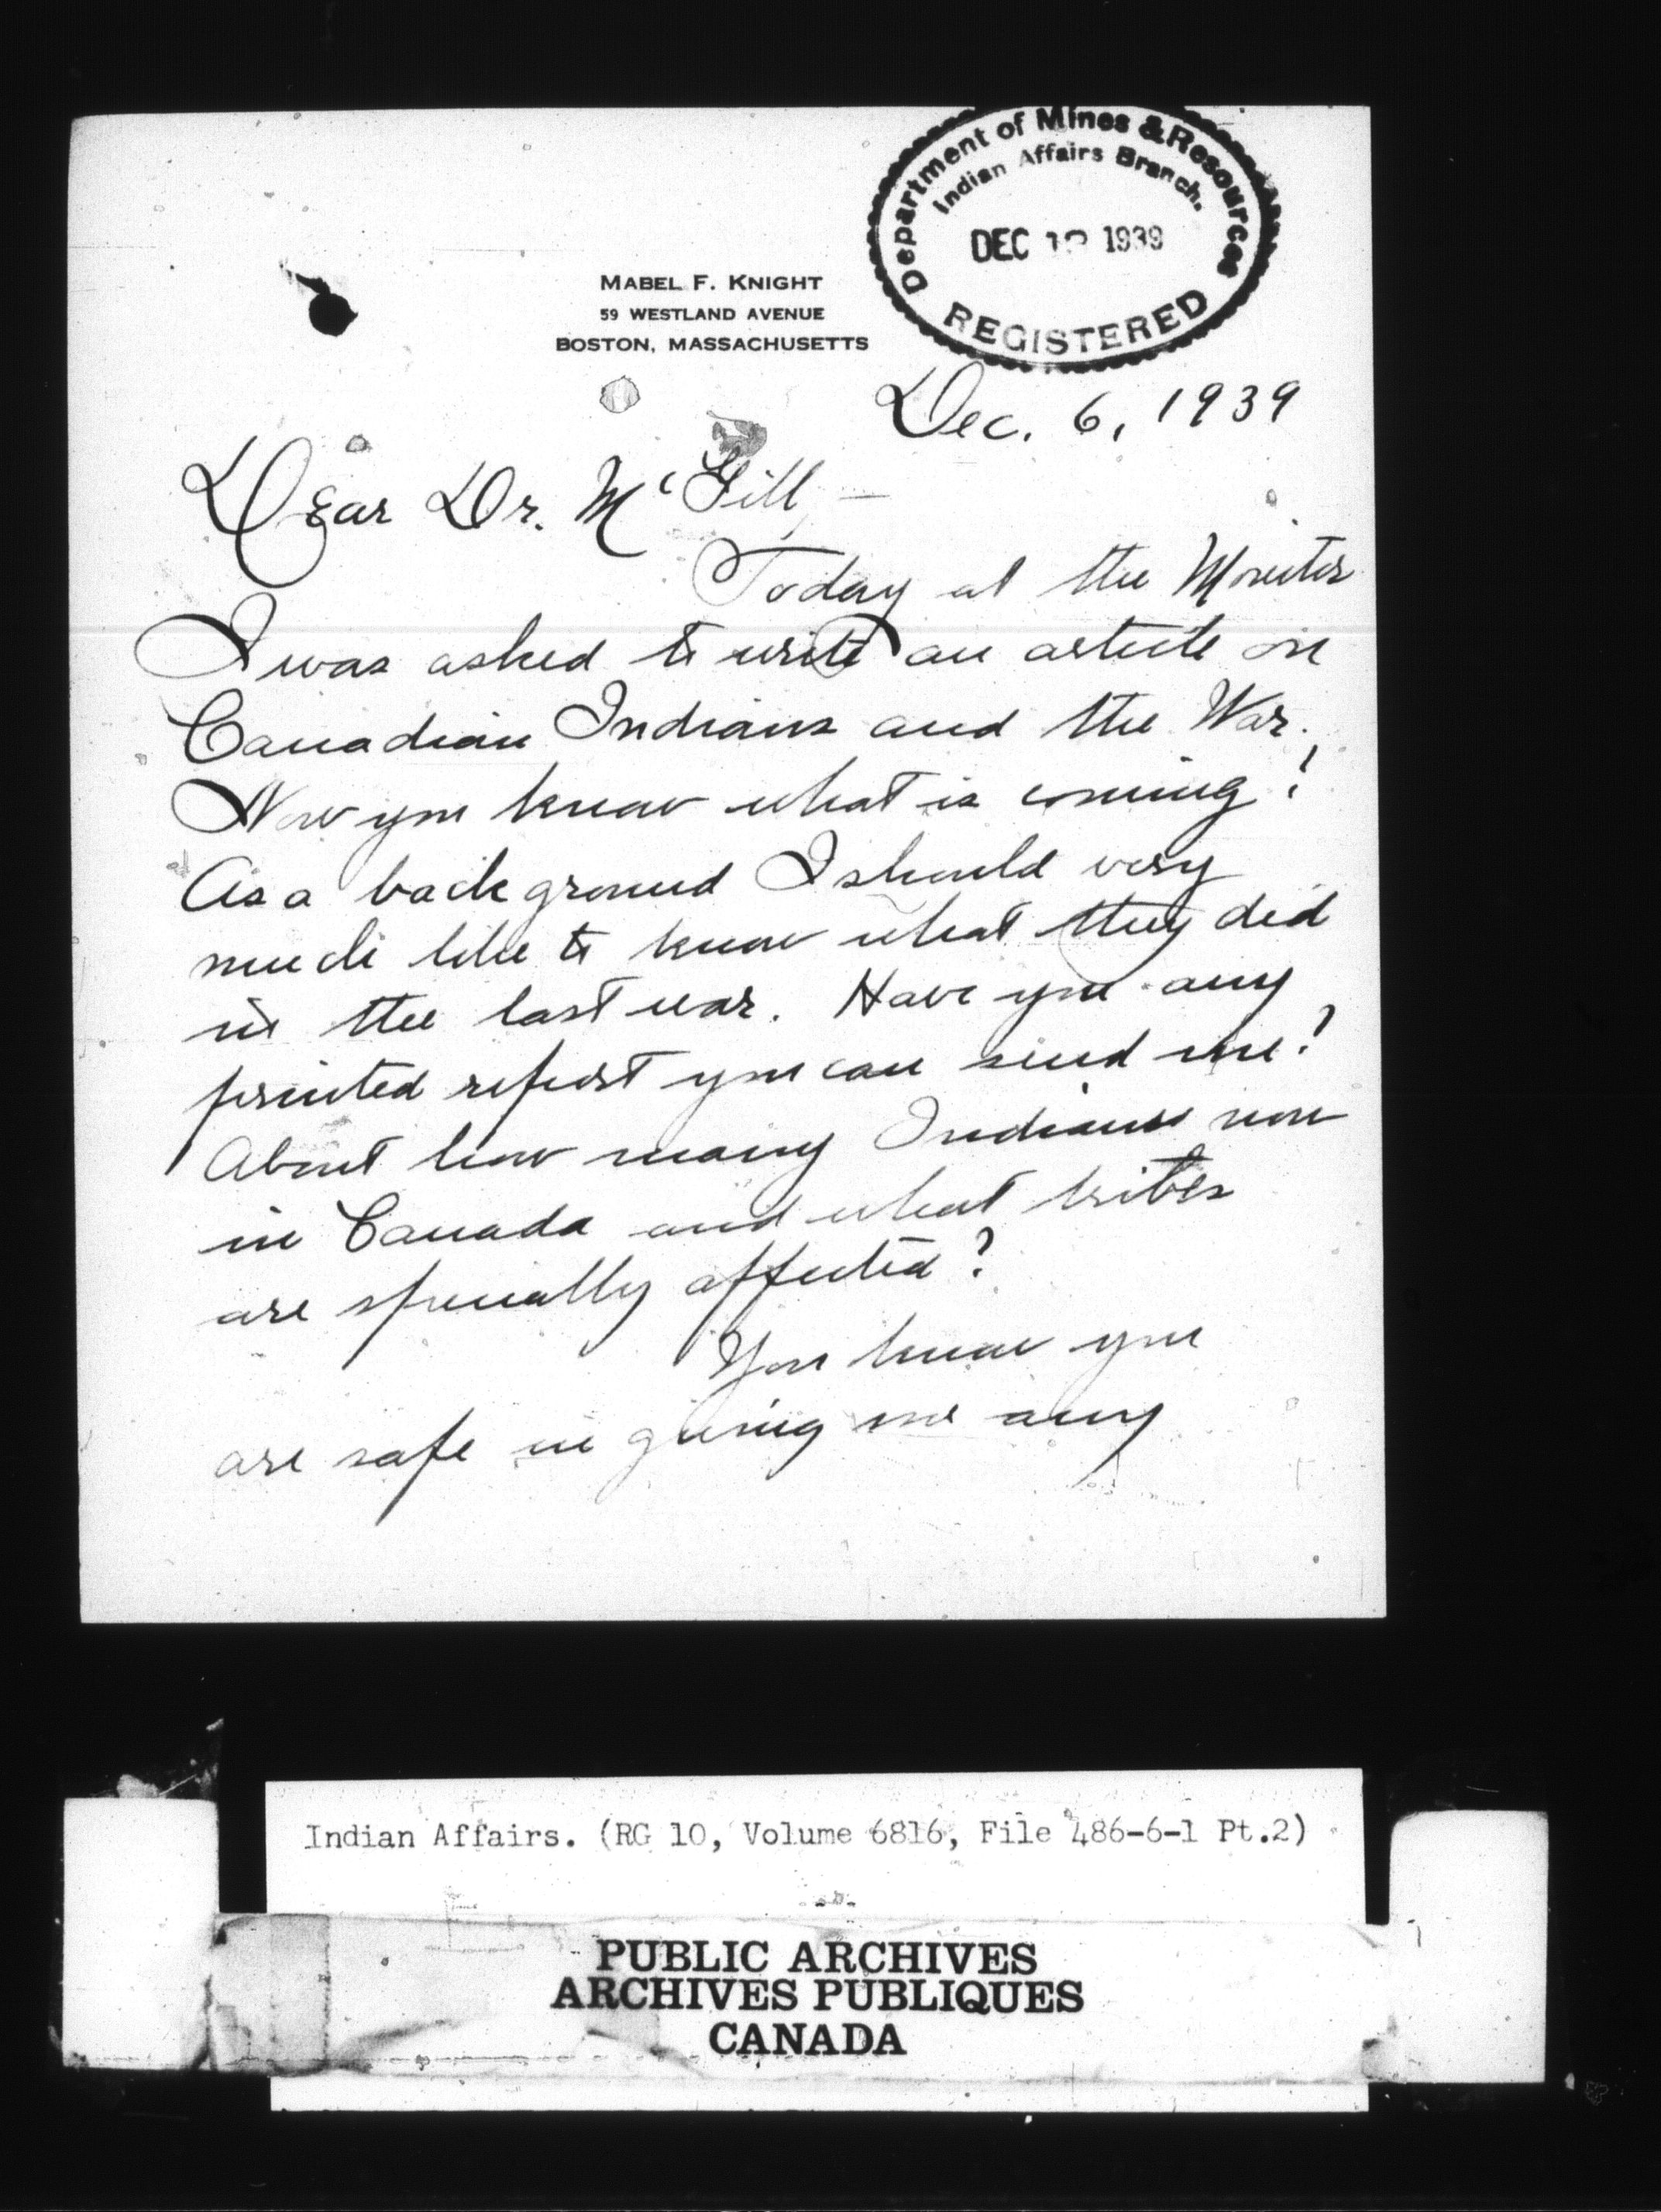 Department of Mines & Resources
Indian Affairs Branch.
DEC 1939
REGISTERED
MABEL F. KNIGHT
59 WESTLAND AVENUE
BOSTON, MASSACHUSETTS
Dec. 6, 1939
Dear Dr. McGill —
Today at the Monitor
I was asked to write an article on
Canadian Indians and the War.
Now you know what is coming!
As a background I should very
much like to know what they did
in the last war. Have you any
printed report you can send me?
About how many Indians now
in Canada and what tribes
are specially affected?
You know you
are safe in giving me any
Indian Affairs. (RG 10, Volume 6816, File 486-6-1 Pt.2)
PUBLIC ARCHIVES
ARCHIVES PUBLIQUES
CANADA